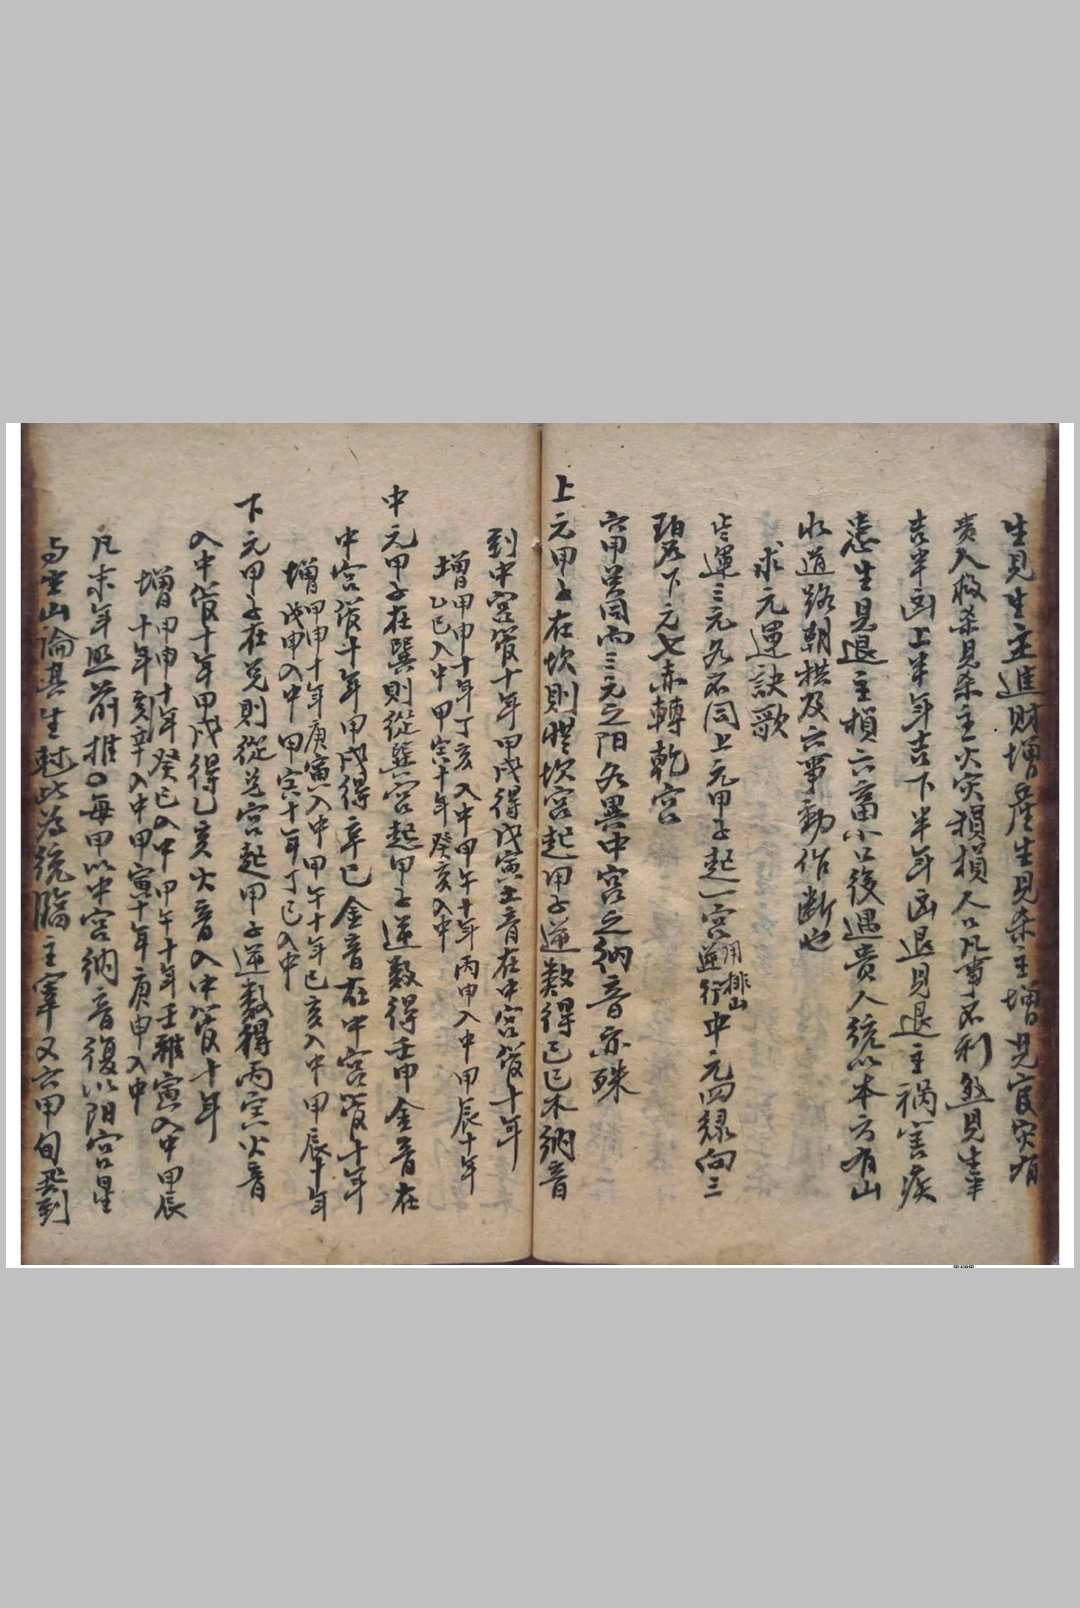 生見生主進財增產生見杀主增見官灾有
貴人極杀見杀主火灾損損人口凡事不利煞見生半
吉半凶上半年吉下半年凶退見退主祸害疾
恙生見退主損六畜小口後遇貴人統以本方有山
水道路朝拱及六事動作断也
求元運訣歌
年運三元各不同上元甲子起一宮用排山逆行中元四綠向三
碧下元七赤轉乾宮
六甲皆同而三元之阳各異中宮之納音亦殊
上元甲子在坎則從坎宮起甲子逆数得己巳木納音
到中宮管十年甲戌得戊寅土音在中宮管十年
增甲申十年丁亥入中甲午十年丙申入中甲辰十年
乙巳入中甲寅十年癸亥入中
中元甲子在巽則從巽宮起甲子逆数得壬申金音在
中宮管十年甲戌得辛巳金音在中宮管十年
增甲申十年庚寅入中甲午十年己亥入中甲辰十年
戊申入中甲寅十年丁巳入中
下元甲子在兑則從兑宮起甲子逆数得丙寅火音
入中管十年甲戌得乙亥火音入中管十年
增甲申十年癸巳入中甲午十年壬寅入中甲辰
十年辛亥入中甲寅十年庚申入中
凡末年照前推○每甲以中宮納音復以阳宮星
与坐山論其生尅此為統臨主宰又六甲旬飛到